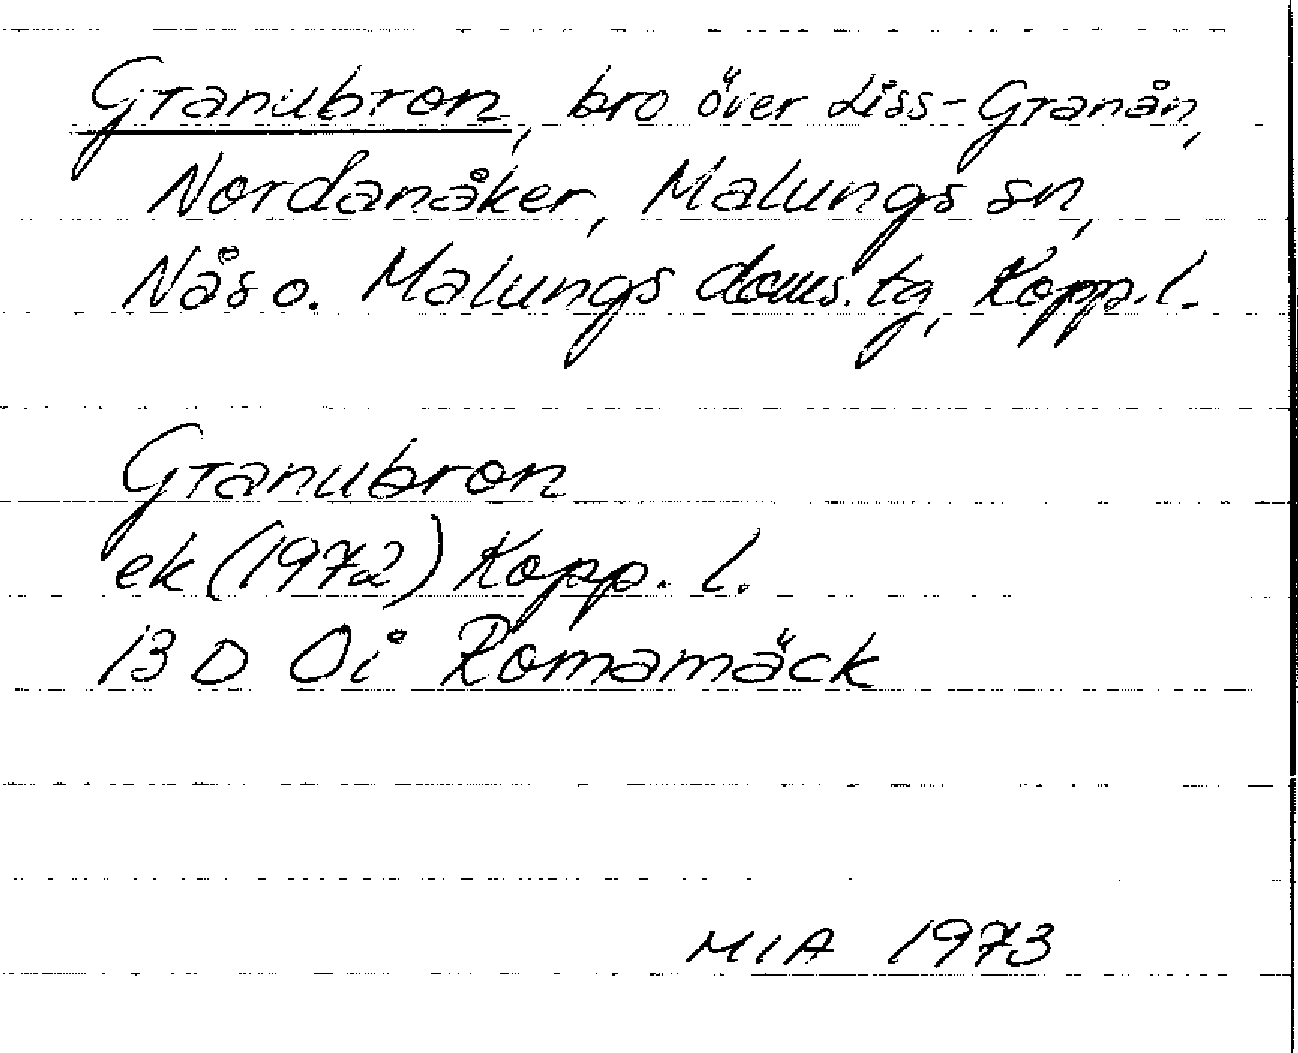 Granubron, bro över Liss-Granån,
Nordanåker, Malungs sn,
Nås o. Malungs doms.tg, Kopp.l.
Granubron
ek (1972) Kopp. l.
13 D 0i Romamäck
MIA 1973